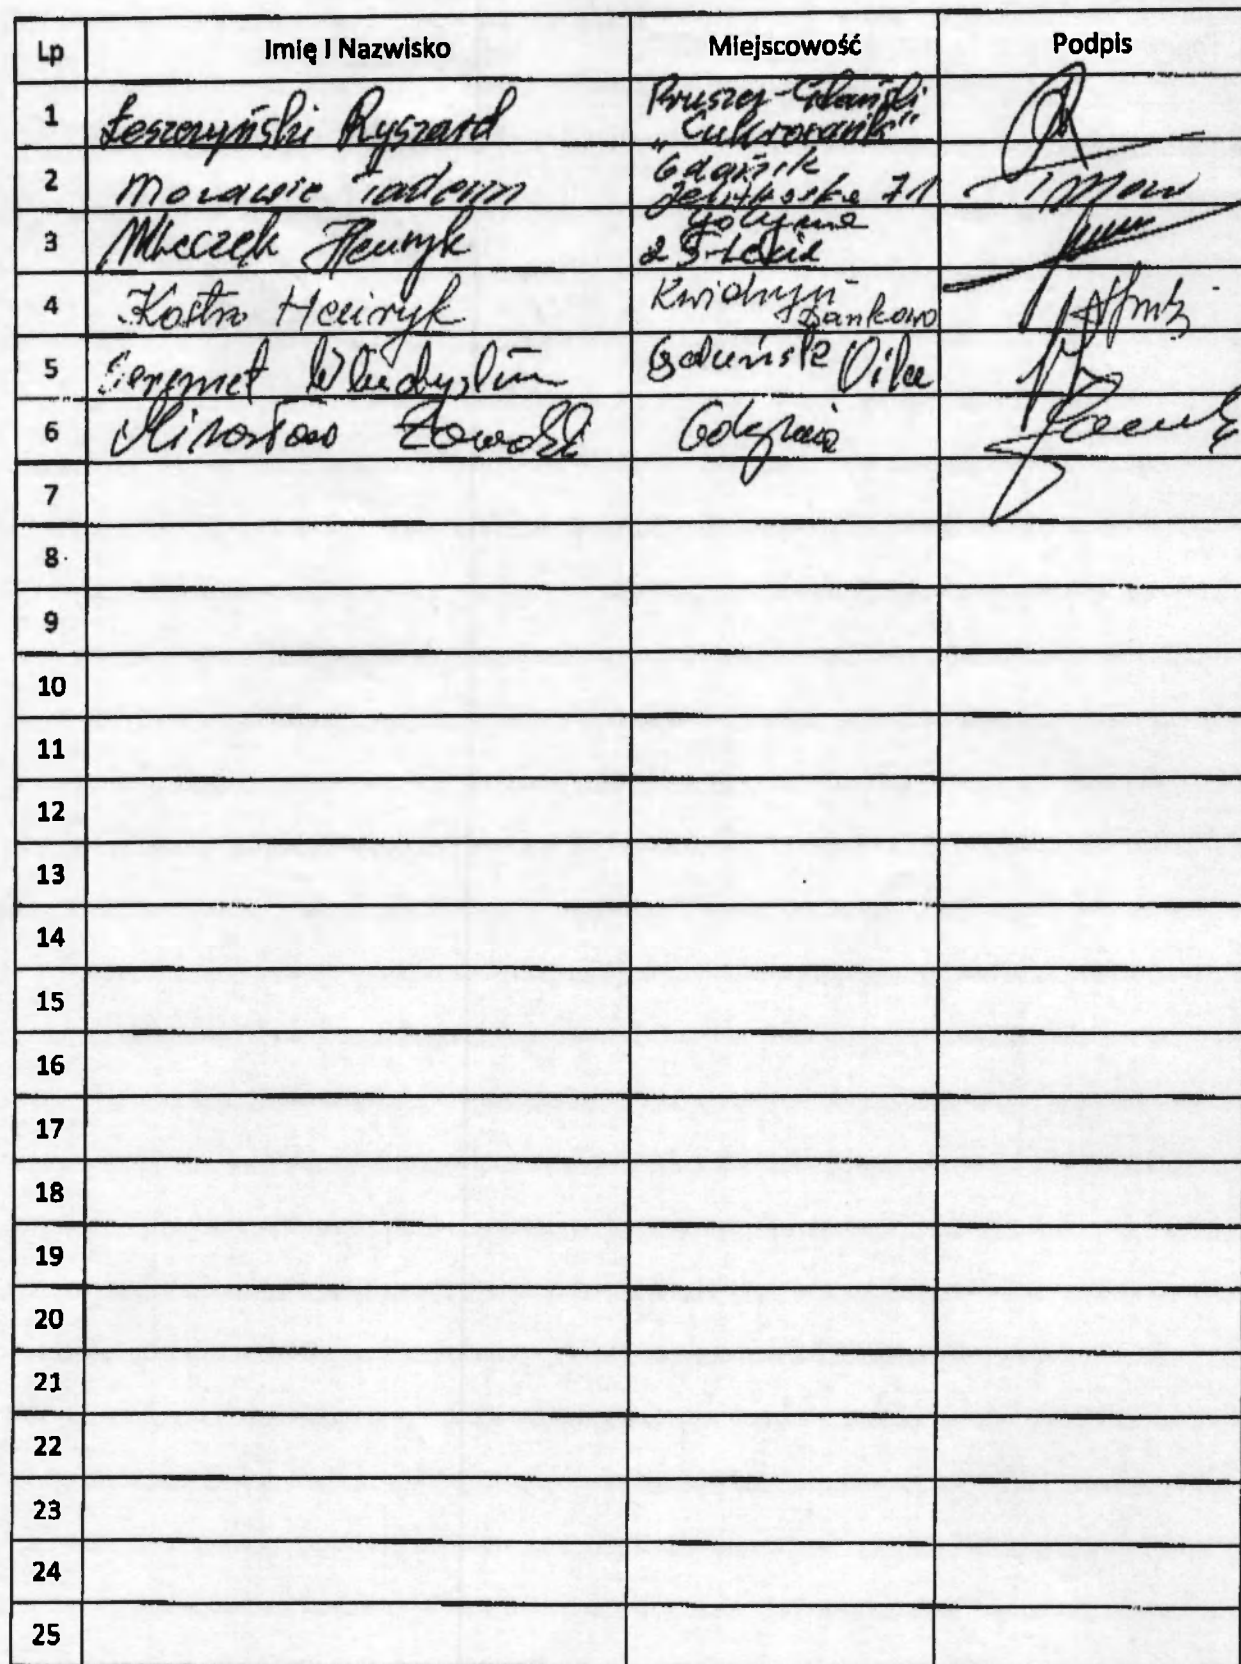 Lp Imię i Nazwisko Miejscowość Podpis
1 Leszczyński Ryszard Pruszcz-Gdański
"Cukrownik"
2 Morawie Tadeusz Gdańsk
Jelitkowska 71
3 Mleczek Henryk Gdynia
25-Lecie
4 Kostro Henryk Kwidzyn
5 Władysław Gdańsk
6 Mirosław Zawadzki Gdynia
7
8
9
10
11
12
13
14
15
16
17
18
19
20
21
22
23
24
25